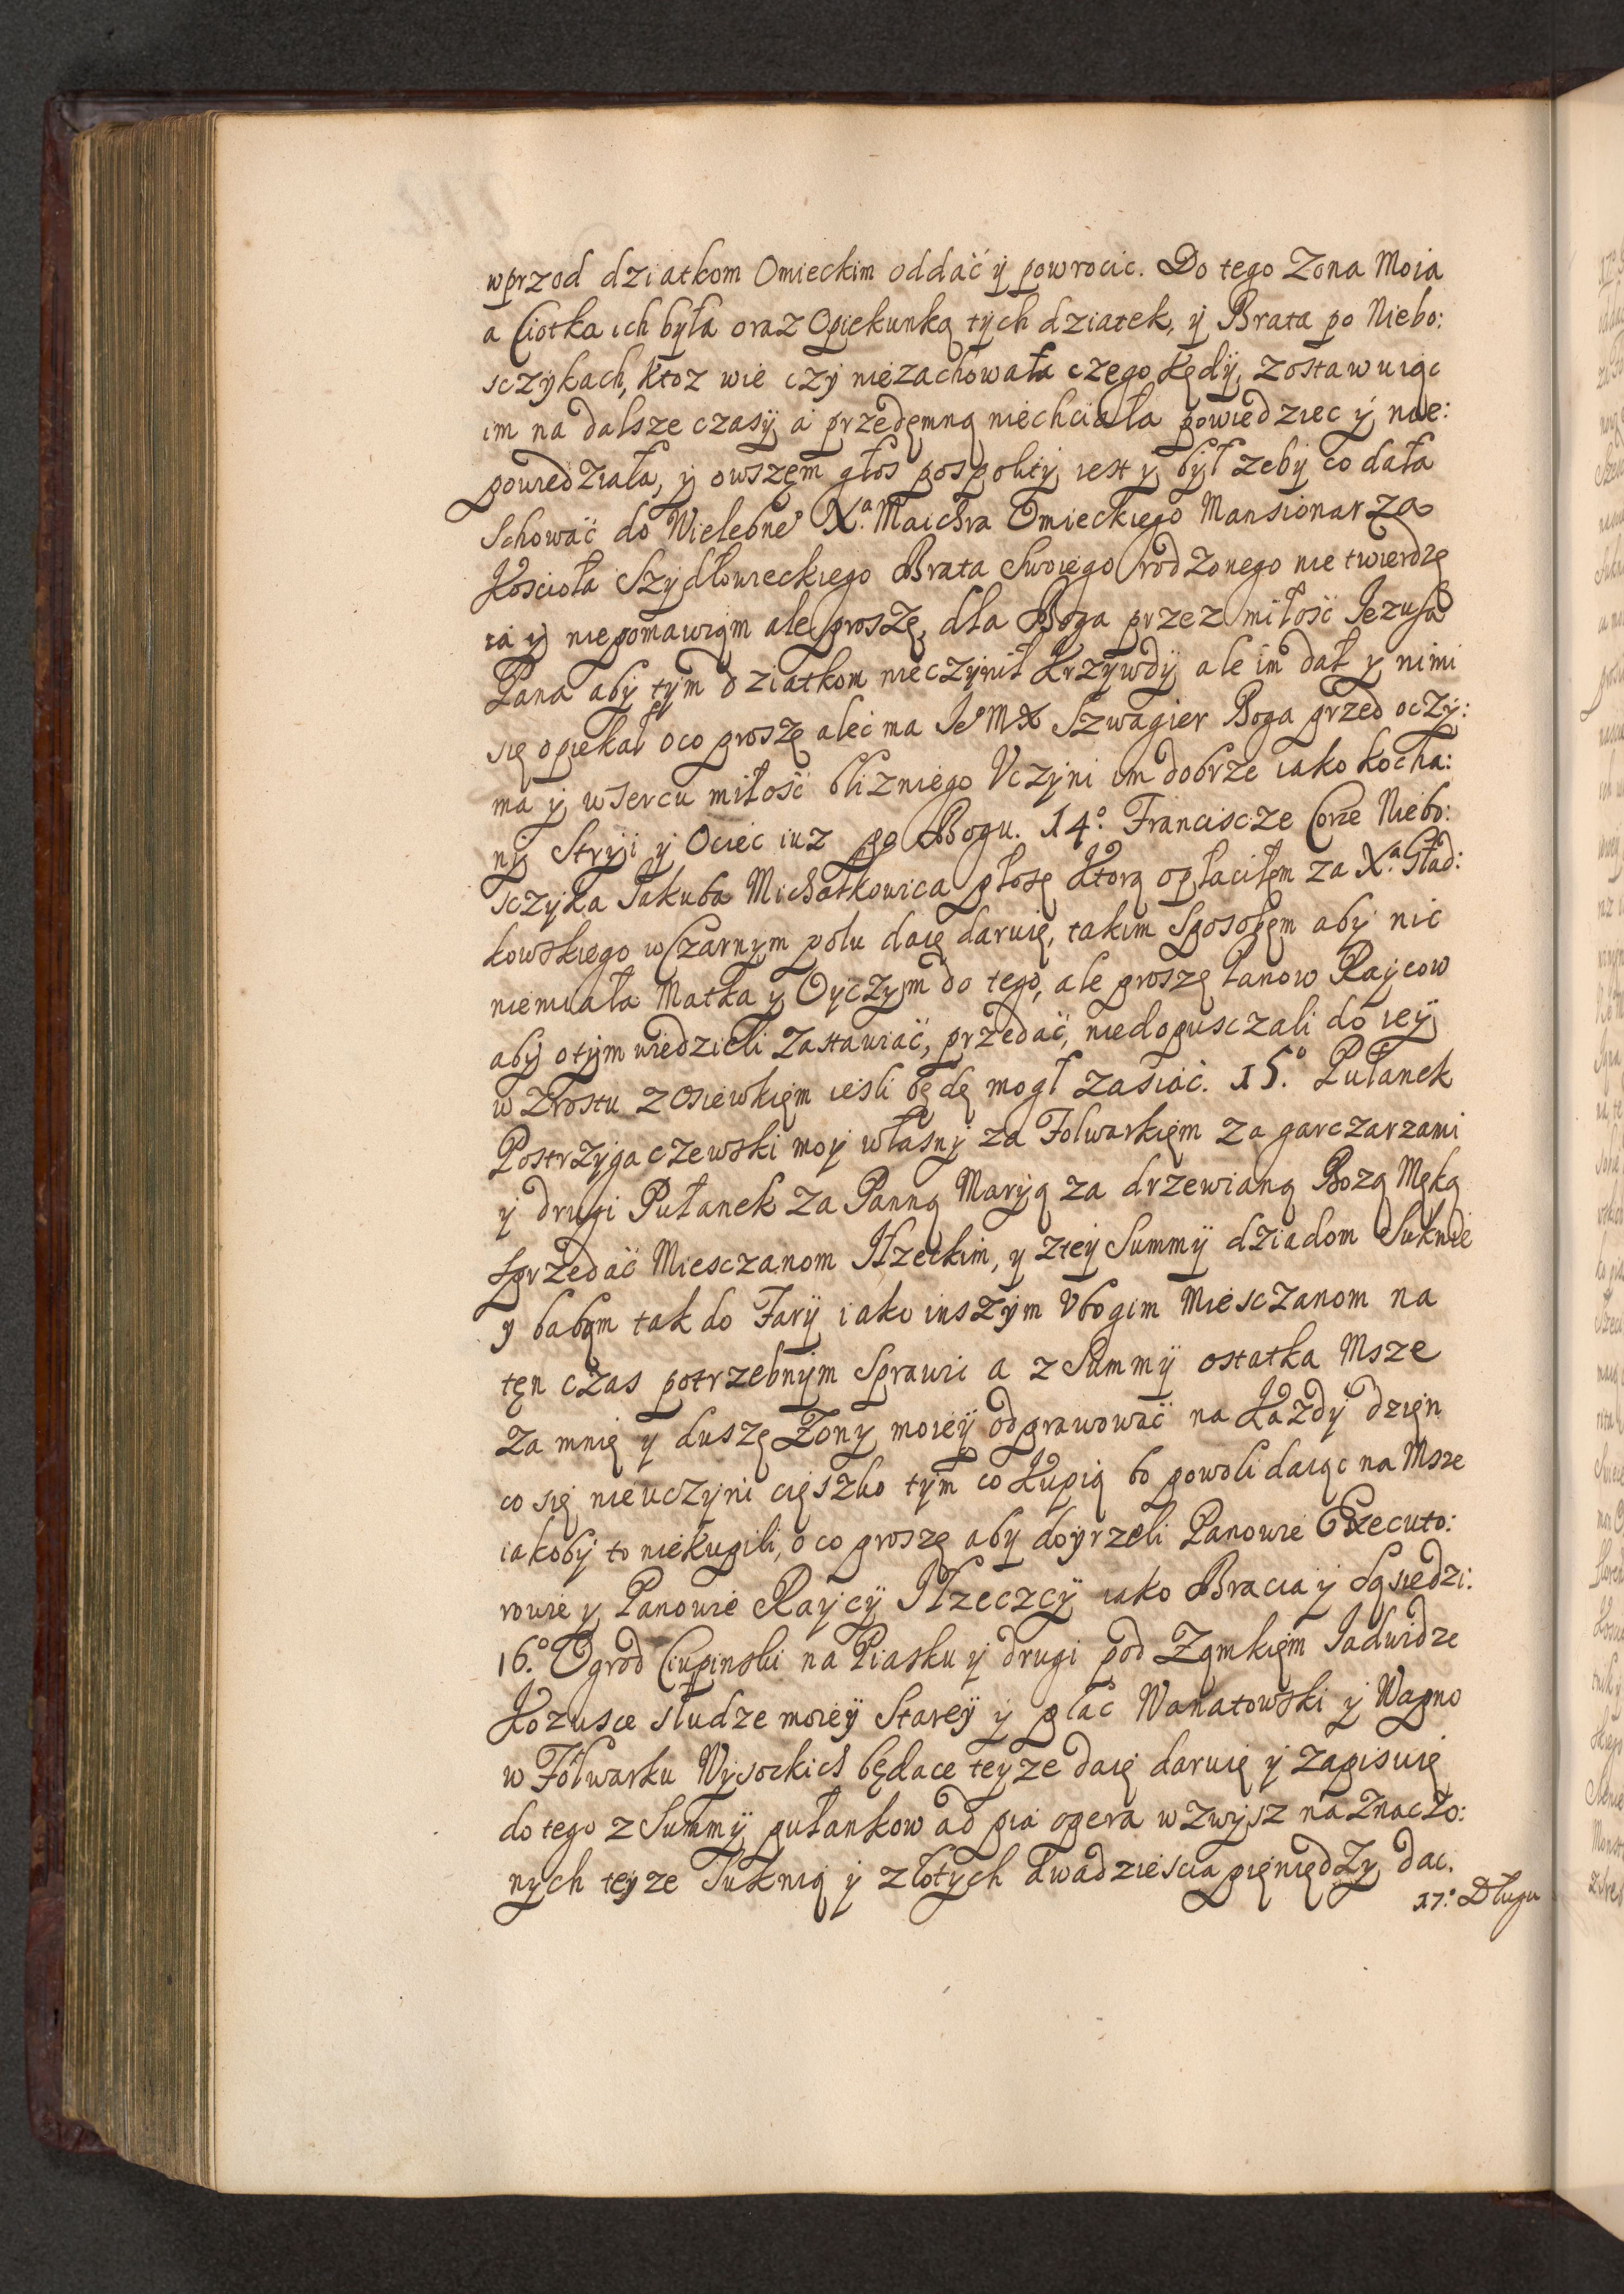 wprzod dziatkom Omieckim oddać ÿ powrocic. Do tego Zona Moia
a Ciotka ich była oraz Opiekunką tÿch dziatek, ÿ Brata po Niebo:
sczÿkach, ktoz wie czÿ niezachowała czego kędÿ, zostawuiąc
im na dalsze czasÿ a przedęmną niechciała powiedziec ÿ nie:
powiedziała, ÿ owszęm głos pospolitÿ iest ÿ bÿł zebÿ co dała
Schować do Wielebne° X.ª Maichra Omieckiego Mansionarza
Kościoła Szÿdłowieckiego Brata Swoiego rodzonego nie twierdzę
ia ÿ niepomawiąm ale proszę, dla Boga przez miłość Iezusa
Pana abÿ tÿm dziatkom nieczÿnił krzÿwdÿ ale im dał ÿ nimi
się opiekał oco proszę aleć ma Ie° MX Szwagier Boga przed oczÿ:
ma ÿ wsercu miłość blizniego Uczÿni im dobrze iako kocha:
nÿ Strÿi ÿ Ociec iuz po Bogu. 14.° Franciscze Corze Niebo:
sczÿka Jakuba Michałkowica płosę ktorą opłaciłęm za X.ª Gład:
kowskiego w Czarnym polu daię daruię, takim Sposobęm abÿ nic
niemiała Matka ÿ Oÿczÿm do tego, ale proszę Panow Raÿcow
abÿ otÿm wiedzieli Zastawiać, przedać, niedopusczali do ieÿ
wzrostu z Osiewkięm ieśli będę mogł zasiać. 15.° Pułanek
Postrzÿgaczewski moÿ własnÿ za Folwarkięm za garczarzami
ÿ drugi Pułanek za Panną Marÿą za drzewianą Bozą Męką
sprzedać Miesczanom Ilzeckim, ÿ zteÿ Summÿ dziadom Suknie
ÿ babąm tak do Farÿ iako inszÿm Ubogim Miesczanom na
tęn czas potrzebnÿm Sprawić a z Summÿ ostatka Msze
za mnię ÿ duszę Zonÿ moieÿ odprawować na kazdÿ dzięn
co się nieuczÿni cięszko tÿm co kupią bo powoli daiąc na Msze
iakobÿ to niekupili, o co proszę abÿ doÿrzeli Panowie Executo:
rowie ÿ Panowie Raÿcÿ Ilzeczcÿ iako Bracia ÿ Sąsiedzi.
16.° Ogrod Ciupinski na Piasku ÿ drugi pod Ząmkięm Iadwidze
Kozusce słudze moieÿ Stareÿ ÿ plac Wanatowski ÿ Wapno
w Folwarku Wÿsockich będace teÿze daię daruię ÿ zapisuię
do tego z Summÿ pułankow ad pia opera w zwÿsz naznaczo:
nÿch teÿze Suknią ÿ złotÿch dwadzieścia pięniędzÿ dac.
17.° Długu